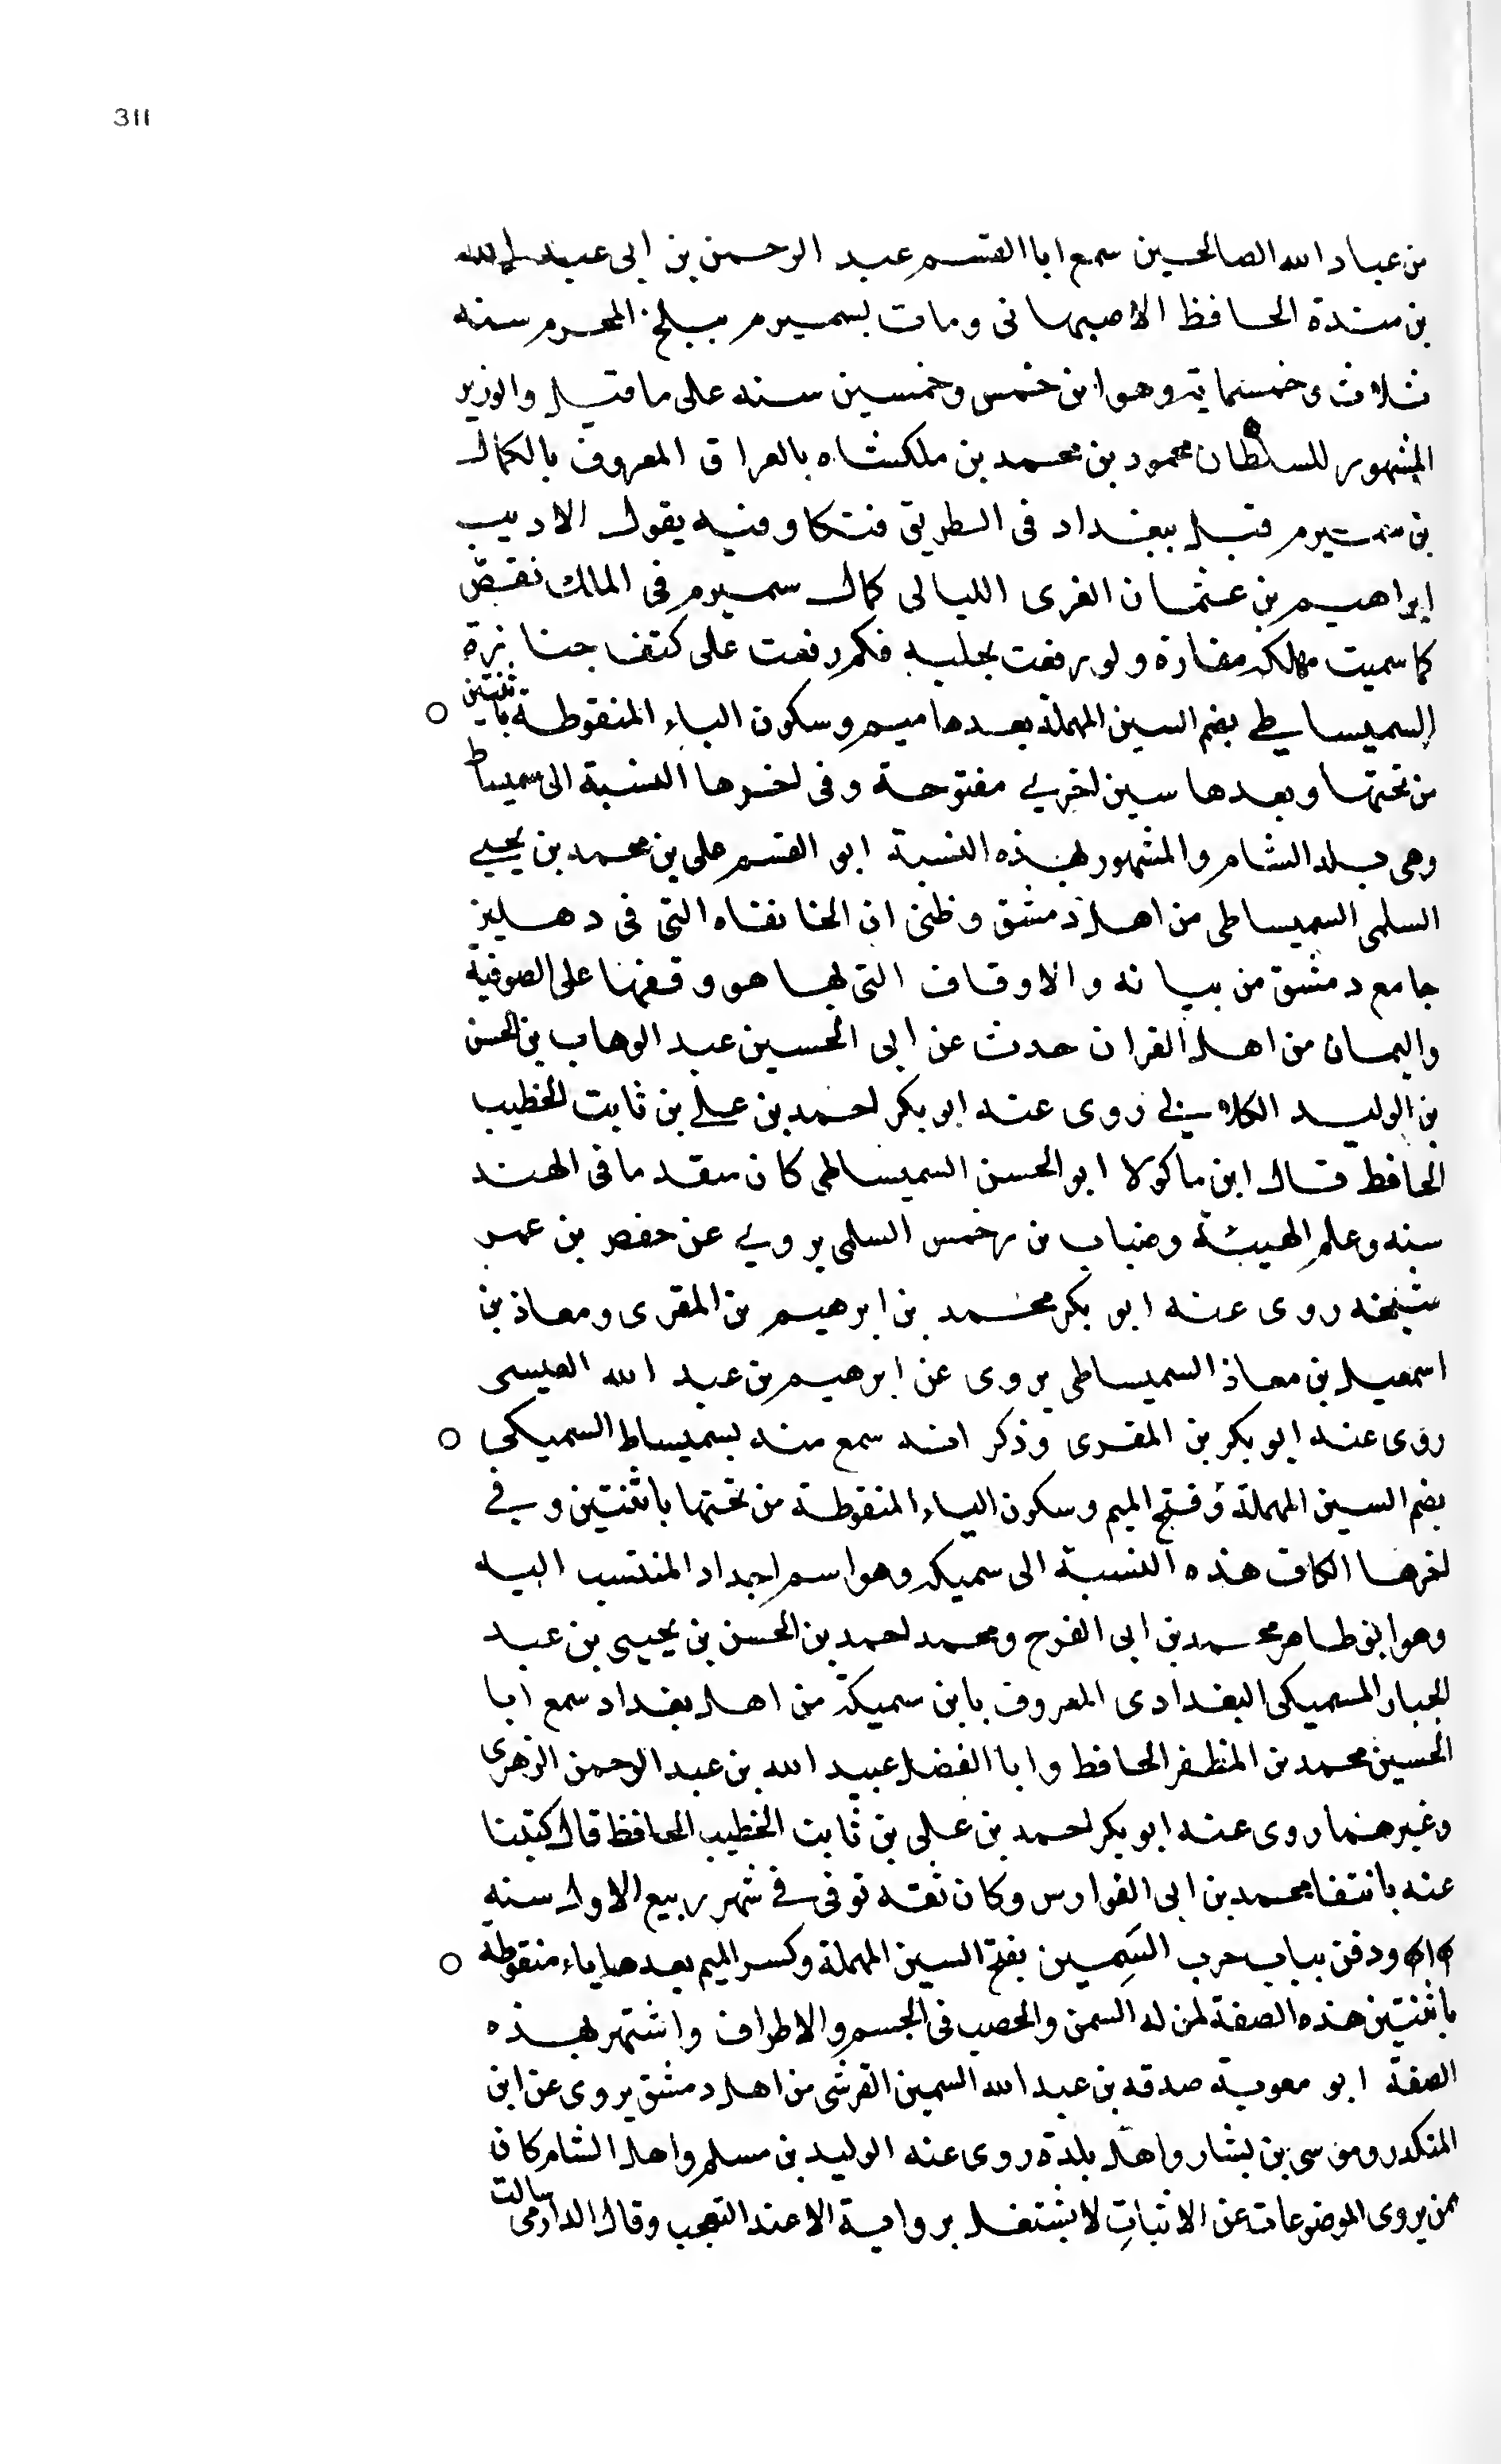 311
من عباد الله الصالحين سمع ابا القسم عبد الرحمن بن ابى عبد الله
بن مندة الحافظ الاصبهانى ومات بسميرم سلخ المحرم سنه
ثلاث وخمسماية وهو ابن خمس وخمسين سنه على ما قيل والوزير
المشهور للسلطان محمود بن محمد بن ملكشاه بالعراق المعروف بالكمال
بن سميرم قتل ببغداد فى الطريق فتكا وفيه يقول الاديب
ابراهيم بن عثمان الغزى الليالى كمال سميرم فى المالك نقص
كما سميت مهلكه مفازة ولو رفعت بجلبه فكم رفعت على كتف جنازة
السميساطي بضم السين المهملة بعدها ميم وسكون الياء المنقوطة باثنتين
من تحتها وبعدها سين اخرى مفتوحة وفى اخرها النسبة الى سميساط
وهى بلد الشام والمشهور بهذه النسبة ابو القسم على بن محمد بن يحيى
السلمى السميساطى من اهل دمشق وظنى ان الخانقاه التى فى دهليز
جامع دمشق من بيانه والاوقاف التى لها هو وقفها على الصوفية
واليمان من اهل القران حدث عن ابى الحسين عبد الوهاب بن الحسن
بن الوليد الكلابى روى عنه ابو بكر احمد بن على بن ثابت الخطيب
الحافظ قال ابن ماكولا ابو الحسن السميساطى كان متقدما فى الهند
سنه وعلم الهيئة وضباب بن رخمس السلمى يروي عن حفص بن عمر
شيخه روى عنه ابو بكر محمد بن ابرهيم بن المقرى ومعاذ بن
اسمعيل بن معاذ السميساطى يروى عن ابرهيم بن عبد الله العبسى
روى عنه ابو بكر بن المقرى وذكر انه سمع منه بسميساط السميكى
بضم السين المهملة وفتح الميم وسكون الياء المنقوطة من تحتها باثنتين وفى
اخرها الكاف هذه النسبة الى سميكه وهو اسم اجداد المنتسب اليه
وهو ابو طاهر محمد بن ابى الفرج ومحمد احمد بن الحسن بن يحيى بن عبد
الجبار المسميكى البغدادى المعروف بابن سميكة من اهل بغداد سمع ابا
الحسين محمد بن المظفر الحافظ وابا الفضل عبيد الله بن عبد الرحمن الزهرى
وغيرهما روى عنه ابو بكر احمد بن على بن ثابت الخطيب الحافظ قال كتبنا
عنه بانتقا محمد بن ابى الفوارس وكان ثقه توفى فى شهر ربيع الاول سنه
ودفن بباب حرب السَمِين بفتح السين المهملة وكسر الميم بعدها ياء منقوطة
باثنتين هذه الصفة لمن له السمن والخصب فى الجسم والاطراف واشتهر بهذه
الصفة ابو معوية صدقه بن عبد الله السمين القرشى من اهل دمشق يروى عن ابن
المنكدر وموسى بن يشار واهل بلدة روى عنه الوليد بن مسلم واهل الشام كان
ممن يروى الموضوعات عن الاثبات لا يشتغل برواية الا عند التعجب وقال الدارمى سالت